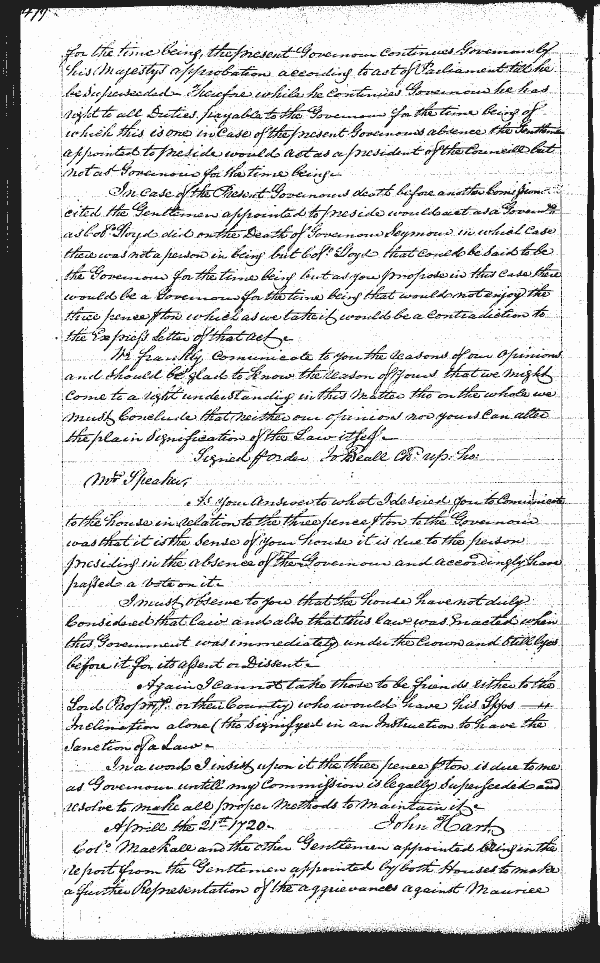 479
for the time being, the present Governour continues Governour by
his Majestys approbation according to act of Parliament till he
be superseeded Therefore while he continues Governour he has
right to all Duties payable to the Governour for the time being of
which this is one in Case of the present Governours absence the Gentleman
appointed to preside would act as a president of the Councill but
not as Governour for the time being.
In case of the Present Governours death before another Comission
cited the Gentlemen appointed to preside would act as a Governr
as Colo. Lloyd did on the Death of Governour Seymour in which Case
there was not a person in being but Colo. Lloyd that could be said to be
the Governour for the time being but as you propose in this case there
would be a Governour for the time being that would not enjoy the
three pence p ton which as we take it would be a contradiction to
the Express letter of that act.
We frankly Comunicate to you the reasons of our opinions
and should be glad to know the reason of yours that we might
come to a right understanding in this matter tho on the whole we
must Conclude that neither our opinions nor yours can alter
the plain signification of the Law itself.
Signed p Order Jo Beall Ch. up. ho:
Mr. Speaker,
As your Answer to what I desired you to Comunicate
to the house in relation to the three pence p ton to the Governour
was that it is the sense of your house it is due to the person
presiding in the absence of the Governour and accordingly have
passed a vote on it.
I must observe to you that the house have not duly
Considered that law and also that this law was Enacted when
this Government was immediately under the Crown and Still lyes
before it for its assent or Dissent.
Again I cannot take those to be friends either to the
Lord Propry. or their Country who would have his Lpps
Inclination alone (tho signifyed in an Instruction to have the
Sanction of a Law.
In a word I insist upon it the three pence p ton is due to me
as Governour untill my Commission is legally superseeded and
resolve to make all proper methods to maintain it.
Aprill the 21st 1720. John Hart
Colo. Mackall and the other Gentlemen appointed bring in the
report from the Gentlemen appointed by both Houses to make
a further Representation of the aggrievances against Maurice